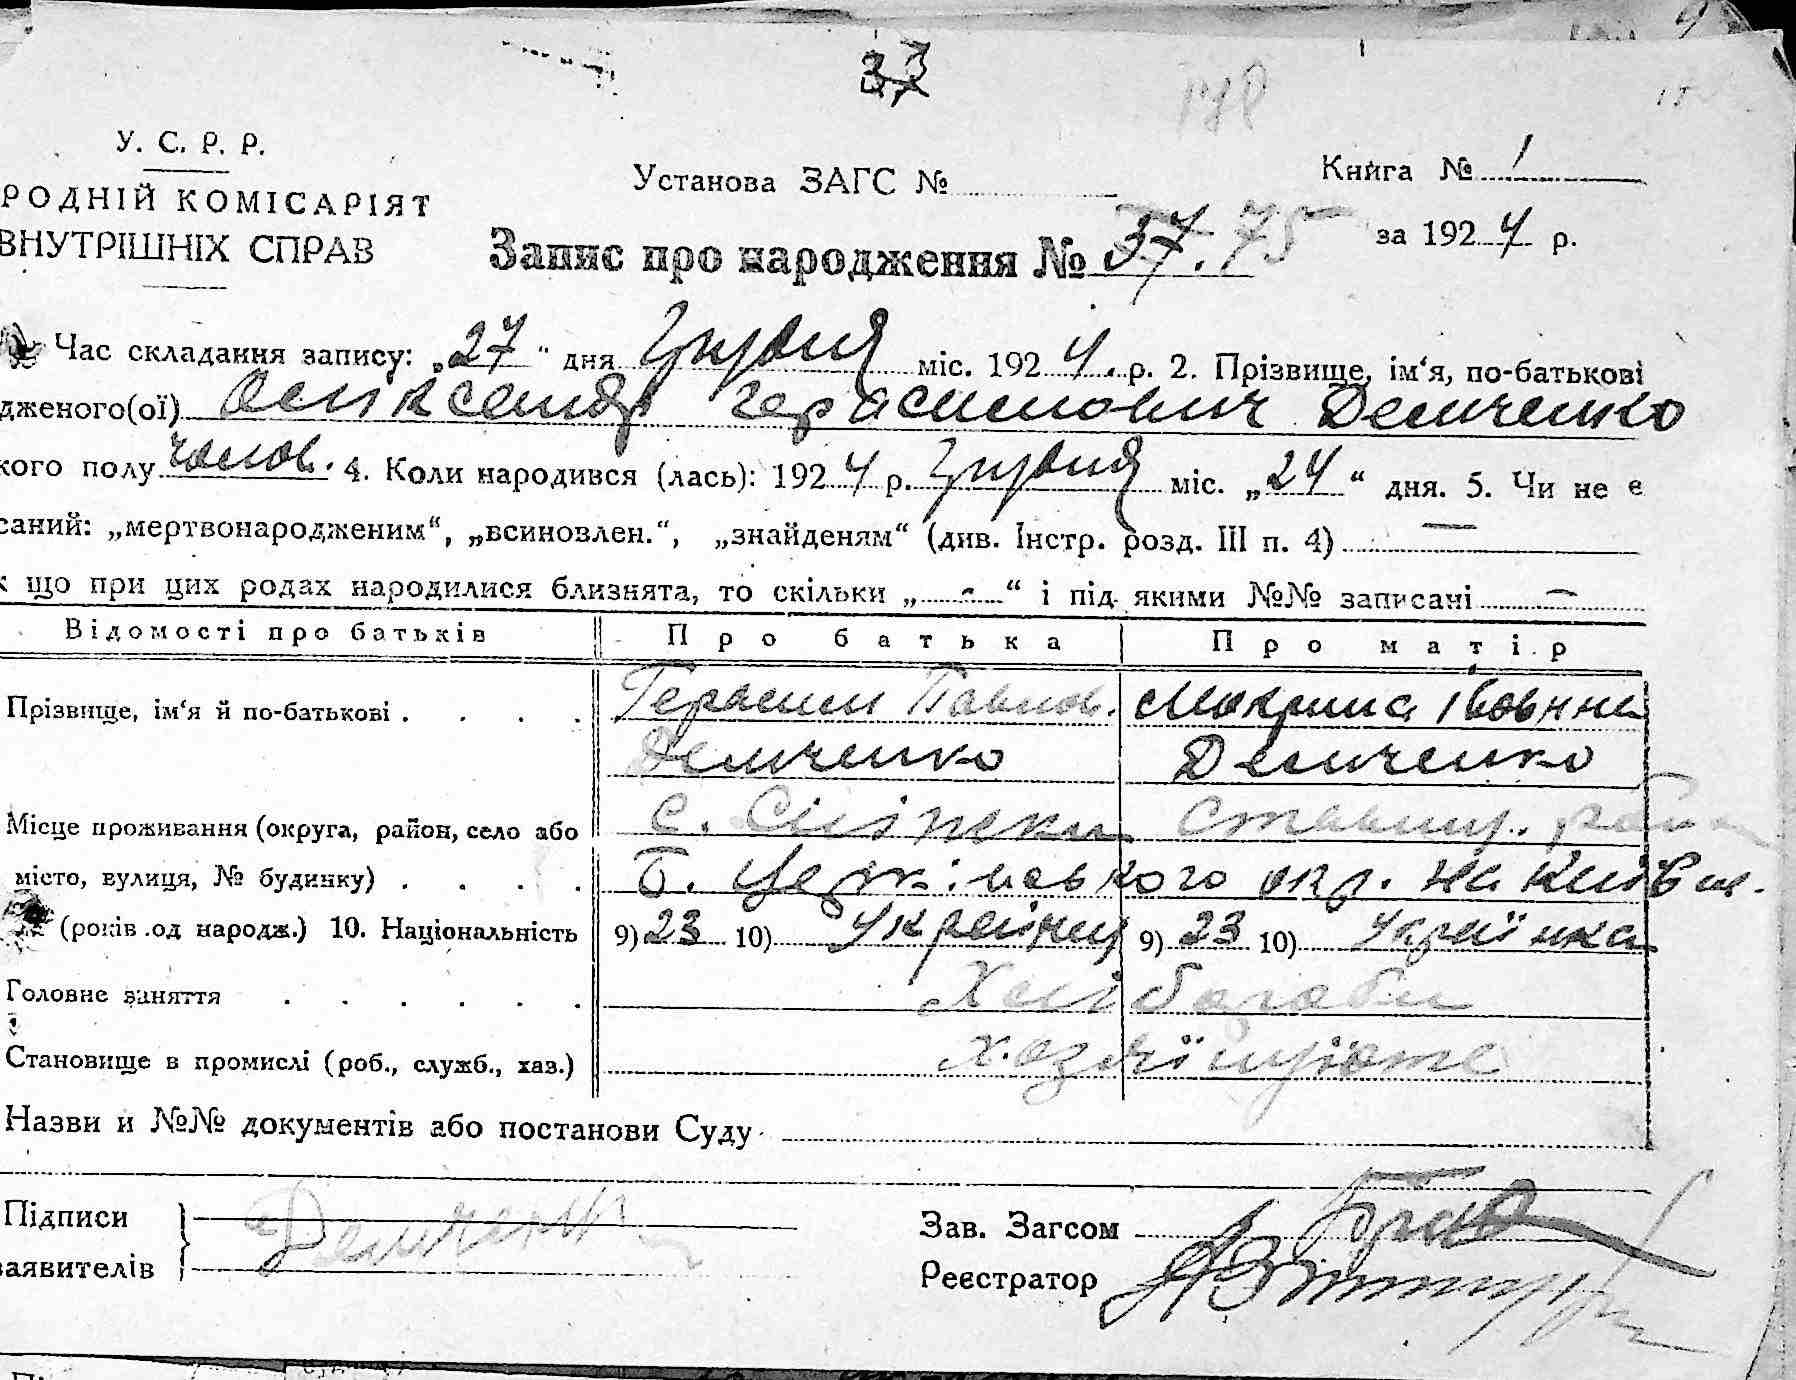 33
178
У. С. Р. Р.
РОДНІЙ КОМІСАРІЯТ
ВНУТРІШНІХ СПРАВ
Установа ЗАГС №
Книга № 1
Запис про народження № 37. 75
за 1924 р.
Час складання запису: „27“ дня Грудня міс. 1924. р. 2. Прізвище, ім‘я, по-батькові
дженого(ої) Олександр Герасимович Демченко
кого полу чолов. 4. Коли народився (лась): 1924 р. Грудня міс. „24“ дня. 5. Чи не є
саний: „мертвонародженим“, „всиновлен.“, „знайденям“ (див. Інстр. розд. III п. 4) —
к що при цих родах народилися близнята, то скільки „ - “ і під якими №№ записані —
Відомості про батьків Про батька Про матір
Прізвище, ім‘я й по-батькові . . . . Герасим Павлов. Мокрина Івовнна
Демченко Демченко
Місце проживання (округа, район, село або с. Сніжки Ставищ. район
місто, вулиця, № будинку) . . . . Б. Церківського окр. на Київщ.
(років од народж.) 10. Національність 9) 23 10) Українец 9) 23 10) Українка
Головне заняття . . . . . . Хлібороби
Становище в промислі (роб., служб., хаз.)
Назви и №№ документів або постанови Суду
Підписи
заявителів
Демченко
Зав. Загсом
Реєстратор